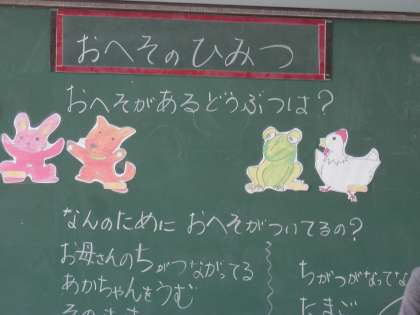 おへその ひみつ
おへそがあるどうぶつは？
なんのために おへそがついてるの？
お母さんのちがつながってる
あかちゃんをうむ
ちがつがなってな
たまご